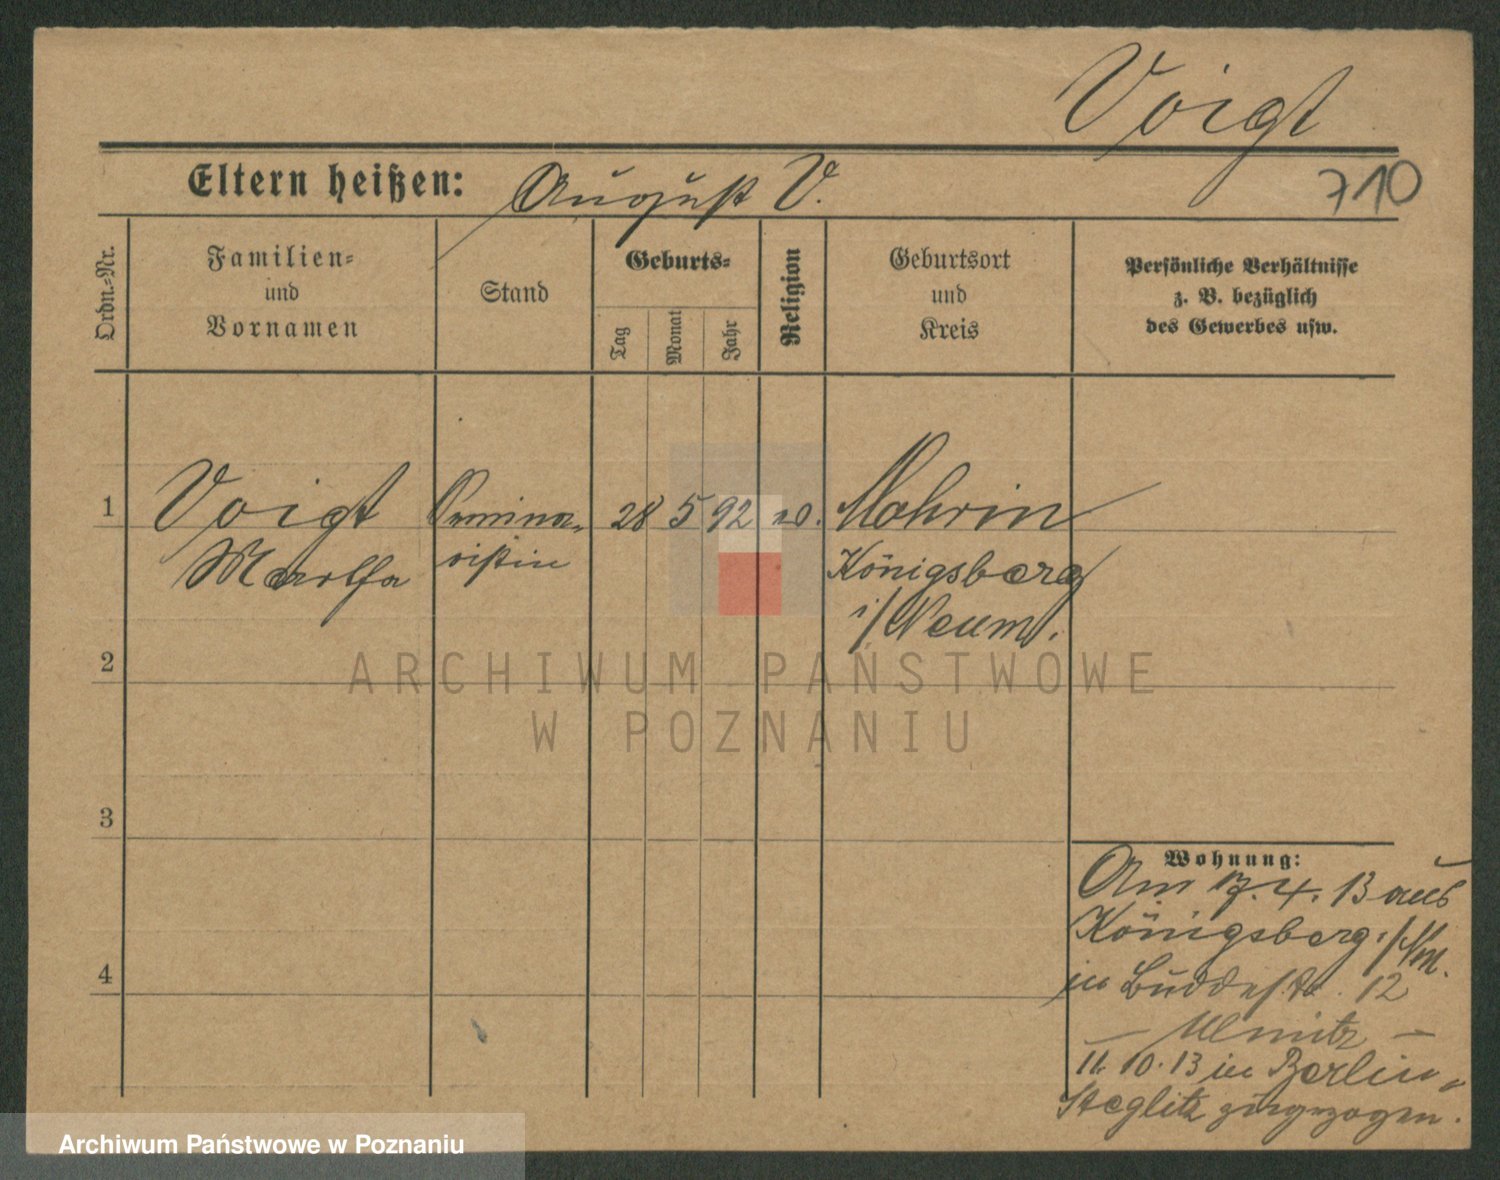 Voigt
710
Eltern heißen: August V.
Ordn.-Nr.
Familien-
und
Vornamen
Stand
Geburts-
Tag
Monat
Jahr
Religion
Geburtsort
und
Kreis
Persönliche Verhältnisse
z. B. bezüglich
des Gewerbes usw.
1
Voigt
Semina-
ristin
28 5 92
Mohrin
Königsberg
i/Neum.
2
3
4
Wohnung:
Am 17.4.13 aus
Königsberg i/Nm.
in Buddestr. 12
11.10.13 in Berlin-
Steglitz zugezogen.
ARCHIWUM PAŃSTWOWE
W POZNANIU
Archiwum Państwowe w Poznaniu